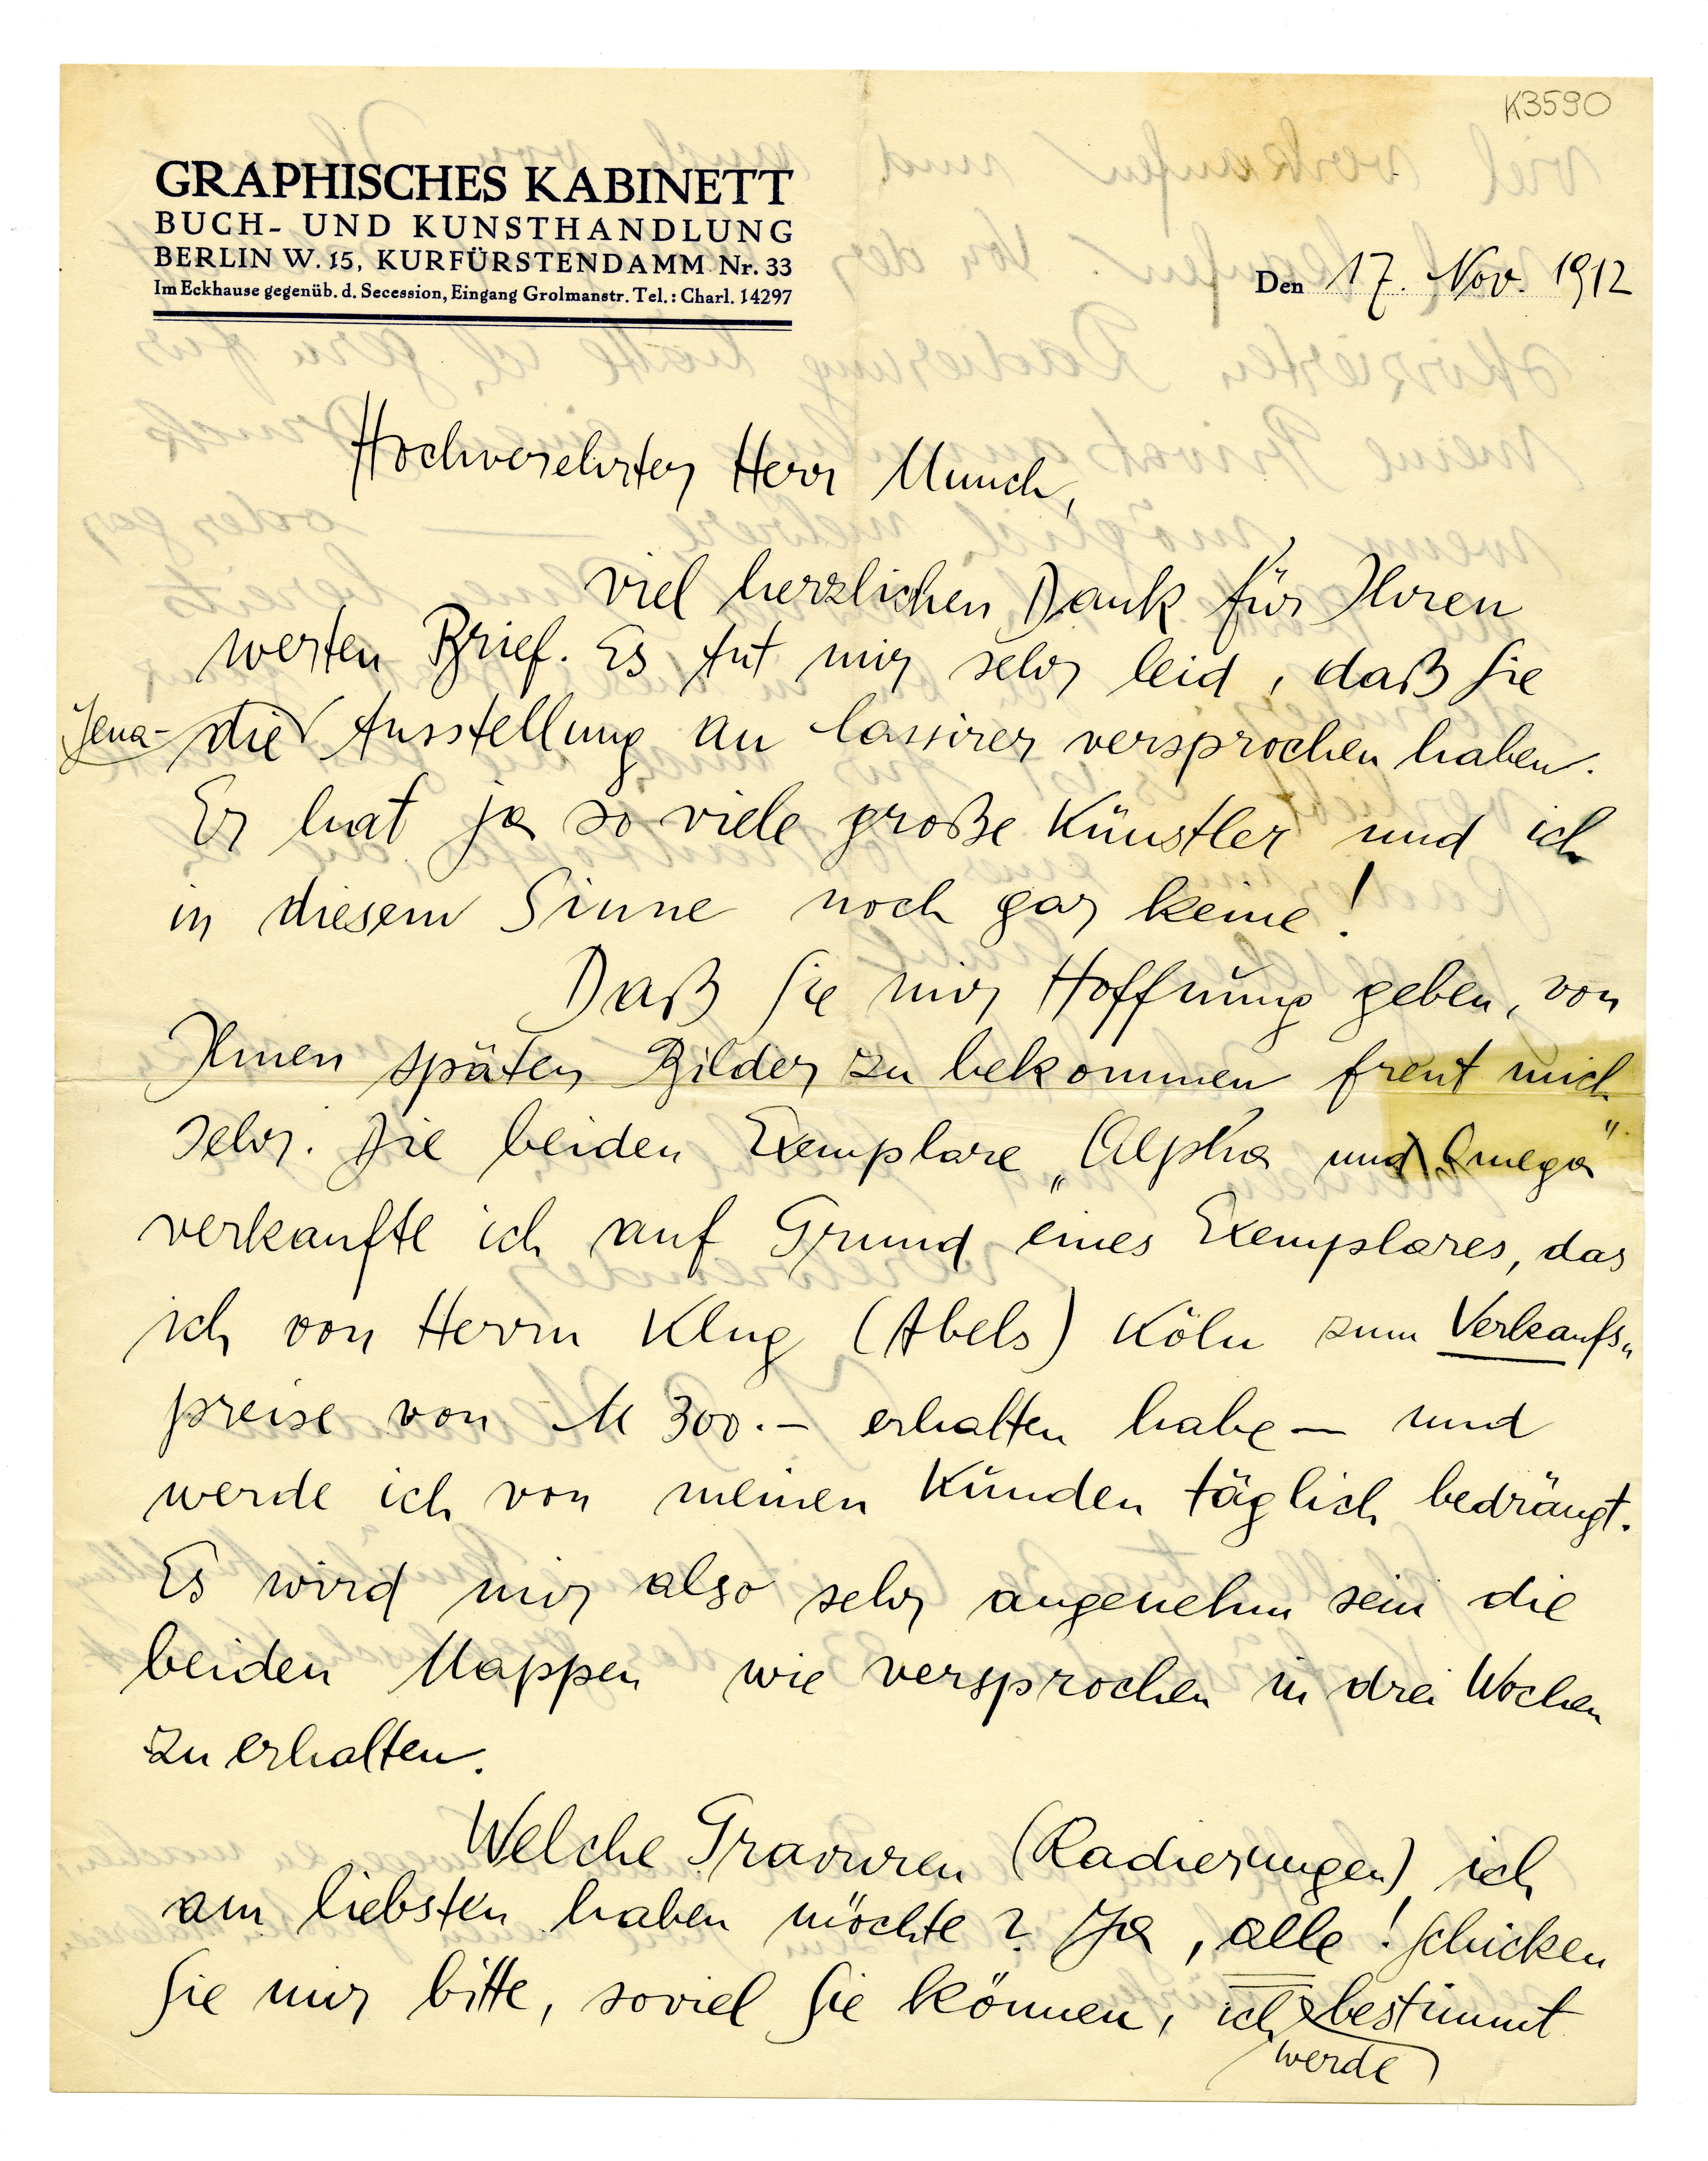 K3590
GRAPHISCHES KABINETT
BUCH- UND KUNSTHANDLUNG
BERLIN W. 15, KURFÜRSTENDAMM Nr. 33
Im Eckhause gegenüb. d. Secession, Eingang Grolmanstr. Tel.: Charl. 14297
Den 17. Nov. 1912
Hochverehrter Herr Munch,
viel herzlichen Dank für Ihren
werten Brief. Es tut mir sehr leid, daß Sie
Jena-
die Ausstellung an Cassirer versprochen haben.
Er hat ja so viele große Künstler und ich
in diesem Sinne noch gar keine!
Daß Sie mir Hoffnung geben, von
Ihnen später Bilder zu bekommen freut mich
sehr. Die beiden Exemplare „Alpha und Omega"
verkaufte ich auf Grund eines Exemplares, das
ich von Herrn Klug (Abels) Köln zum Verkaufs„
preise von M 300.– erhalten habe – und
werde ich von meinen Kunden täglich bedrängt.
Es wird mir also sehr angenehm sein die
beiden Mappen wie versprochen in drei Wochen
zu erhalten.
Welche Gravuren (Radierungen) ich
am liebsten haben möchte? Ja, alle! Schicken
Sie mir bitte, soviel Sie können, ich bestimmt
werde